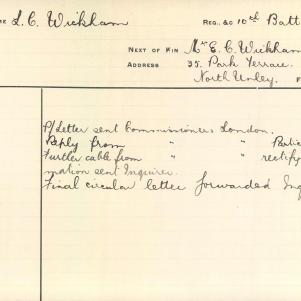 ME L. C. Wickham
REG., &C 10th Batt
NEXT OF KIN Mr E. C. Wickham
ADDRESS 35. Park Terrace.
North Unley.
P/Letter sent Commissioner London.
Reply from " "
Further cable from " " rectify
mation sent Inquirer.
Final circular letter forwarded Inq